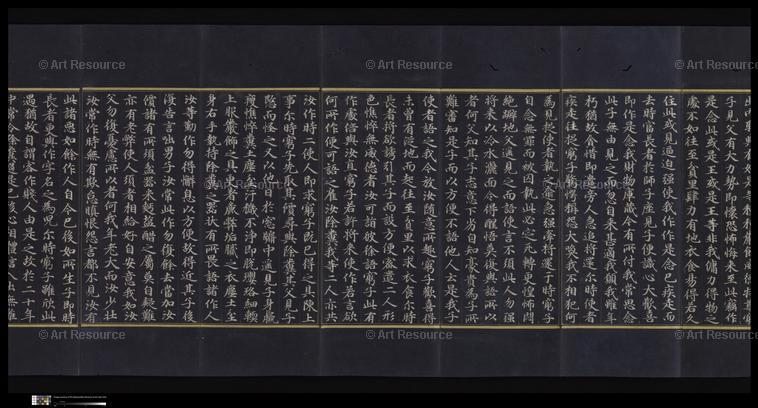 子見父有大力勢即懷恐怖悔來至此竊作
是念此或是王或是王等非我傭力得物之
處不如往至貧里肆力有地衣食易得若久
住此或見逼迫强使我作作是念已疾走而
去時富長者於師子座見子便識心大歡喜
即作是念我財物庫藏今有所付我常思念
此子無由見之而忽自來甚適我願我雖年
朽猶故貪惜即遣旁人急追將還尒時使者
疾走往捉窮子驚愕稱怨大喚我不相犯何
爲見捉使者執之逾急强牽將還于時窮子
自念無罪而被囚執此必定死轉更惶怖悶
絶躃地父遥見之而語使言不須此人勿强
將來以冷水灑面令得醒悟莫復與語所以
者何父知其子志意下劣自知豪貴爲子所
難審知是子而以方便不語他人云是我子
使者語之我今放汝隨意所趣窮子歡喜得
未曾有從地而起往至貧里以求衣食尒時
長者將欲誘引其子而設方便密遣二人形
色憔悴無威德者汝可詣彼徐語窮子此有
作處倍與汝直窮子若許將來使作若言欲
何所作便可語之雇汝除糞我等二人亦共
汝作時二使人即求窮子既已得之具陳上
事尒時窮子先取其價尋與除糞其父見子
愍而怪之又以他日於窓牖中遥見子身羸
瘦憔悴糞土塵坌汙穢不淨即脫瓔珞細軟
上服嚴飾之具更著麤弊垢膩之衣塵土坌
身右手執持除糞之器狀有所畏語諸作人
汝等勤作勿得懈息以方便故得近其子後
復告言咄男子汝常此作勿復餘去當加汝
價諸有所須盆器米麵鹽醋之屬莫自疑難
亦有老弊使人須者相給好自安意我如汝
父勿復憂慮所以者何我年老大而汝少壯
汝常作時無有欺怠瞋恨怨言都不見汝有
此諸惡如餘作人自今已後如所生子即時
長者更與作字名之爲兒尒時窮子雖欣此
遇猶故自謂客作賤人由是之故於二十年
中常令除糞過是已後心相體信入出無難
© Art Resource
© Art Resource
© Art Resource
© Art Resource
© Art Resource
© Art Resource